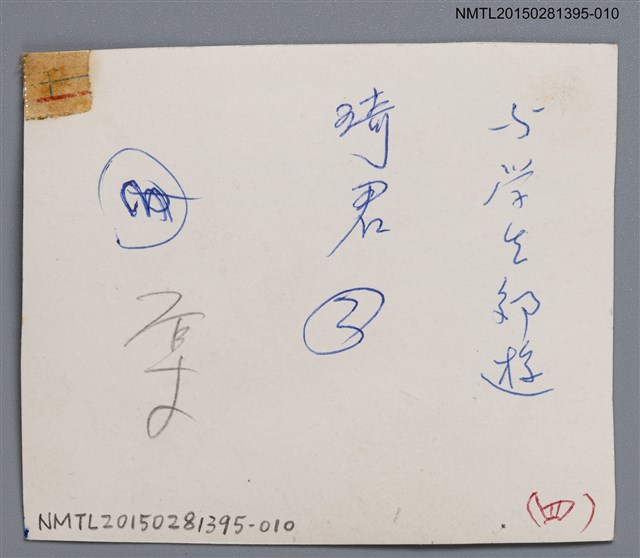 NMTL20150281395-010
与学生郊遊
琦君
③
(四)
NMTL20150281395-010